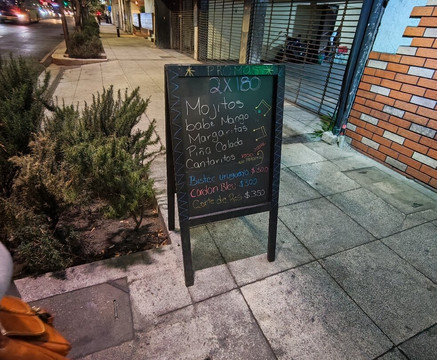 PROMOS
2X180
Mojitos
babi Mango
Margaritas
Piña Colada
Cantaritos
Bistec uruguayo $500
Cordon Bleu $350
Corte de Res $350